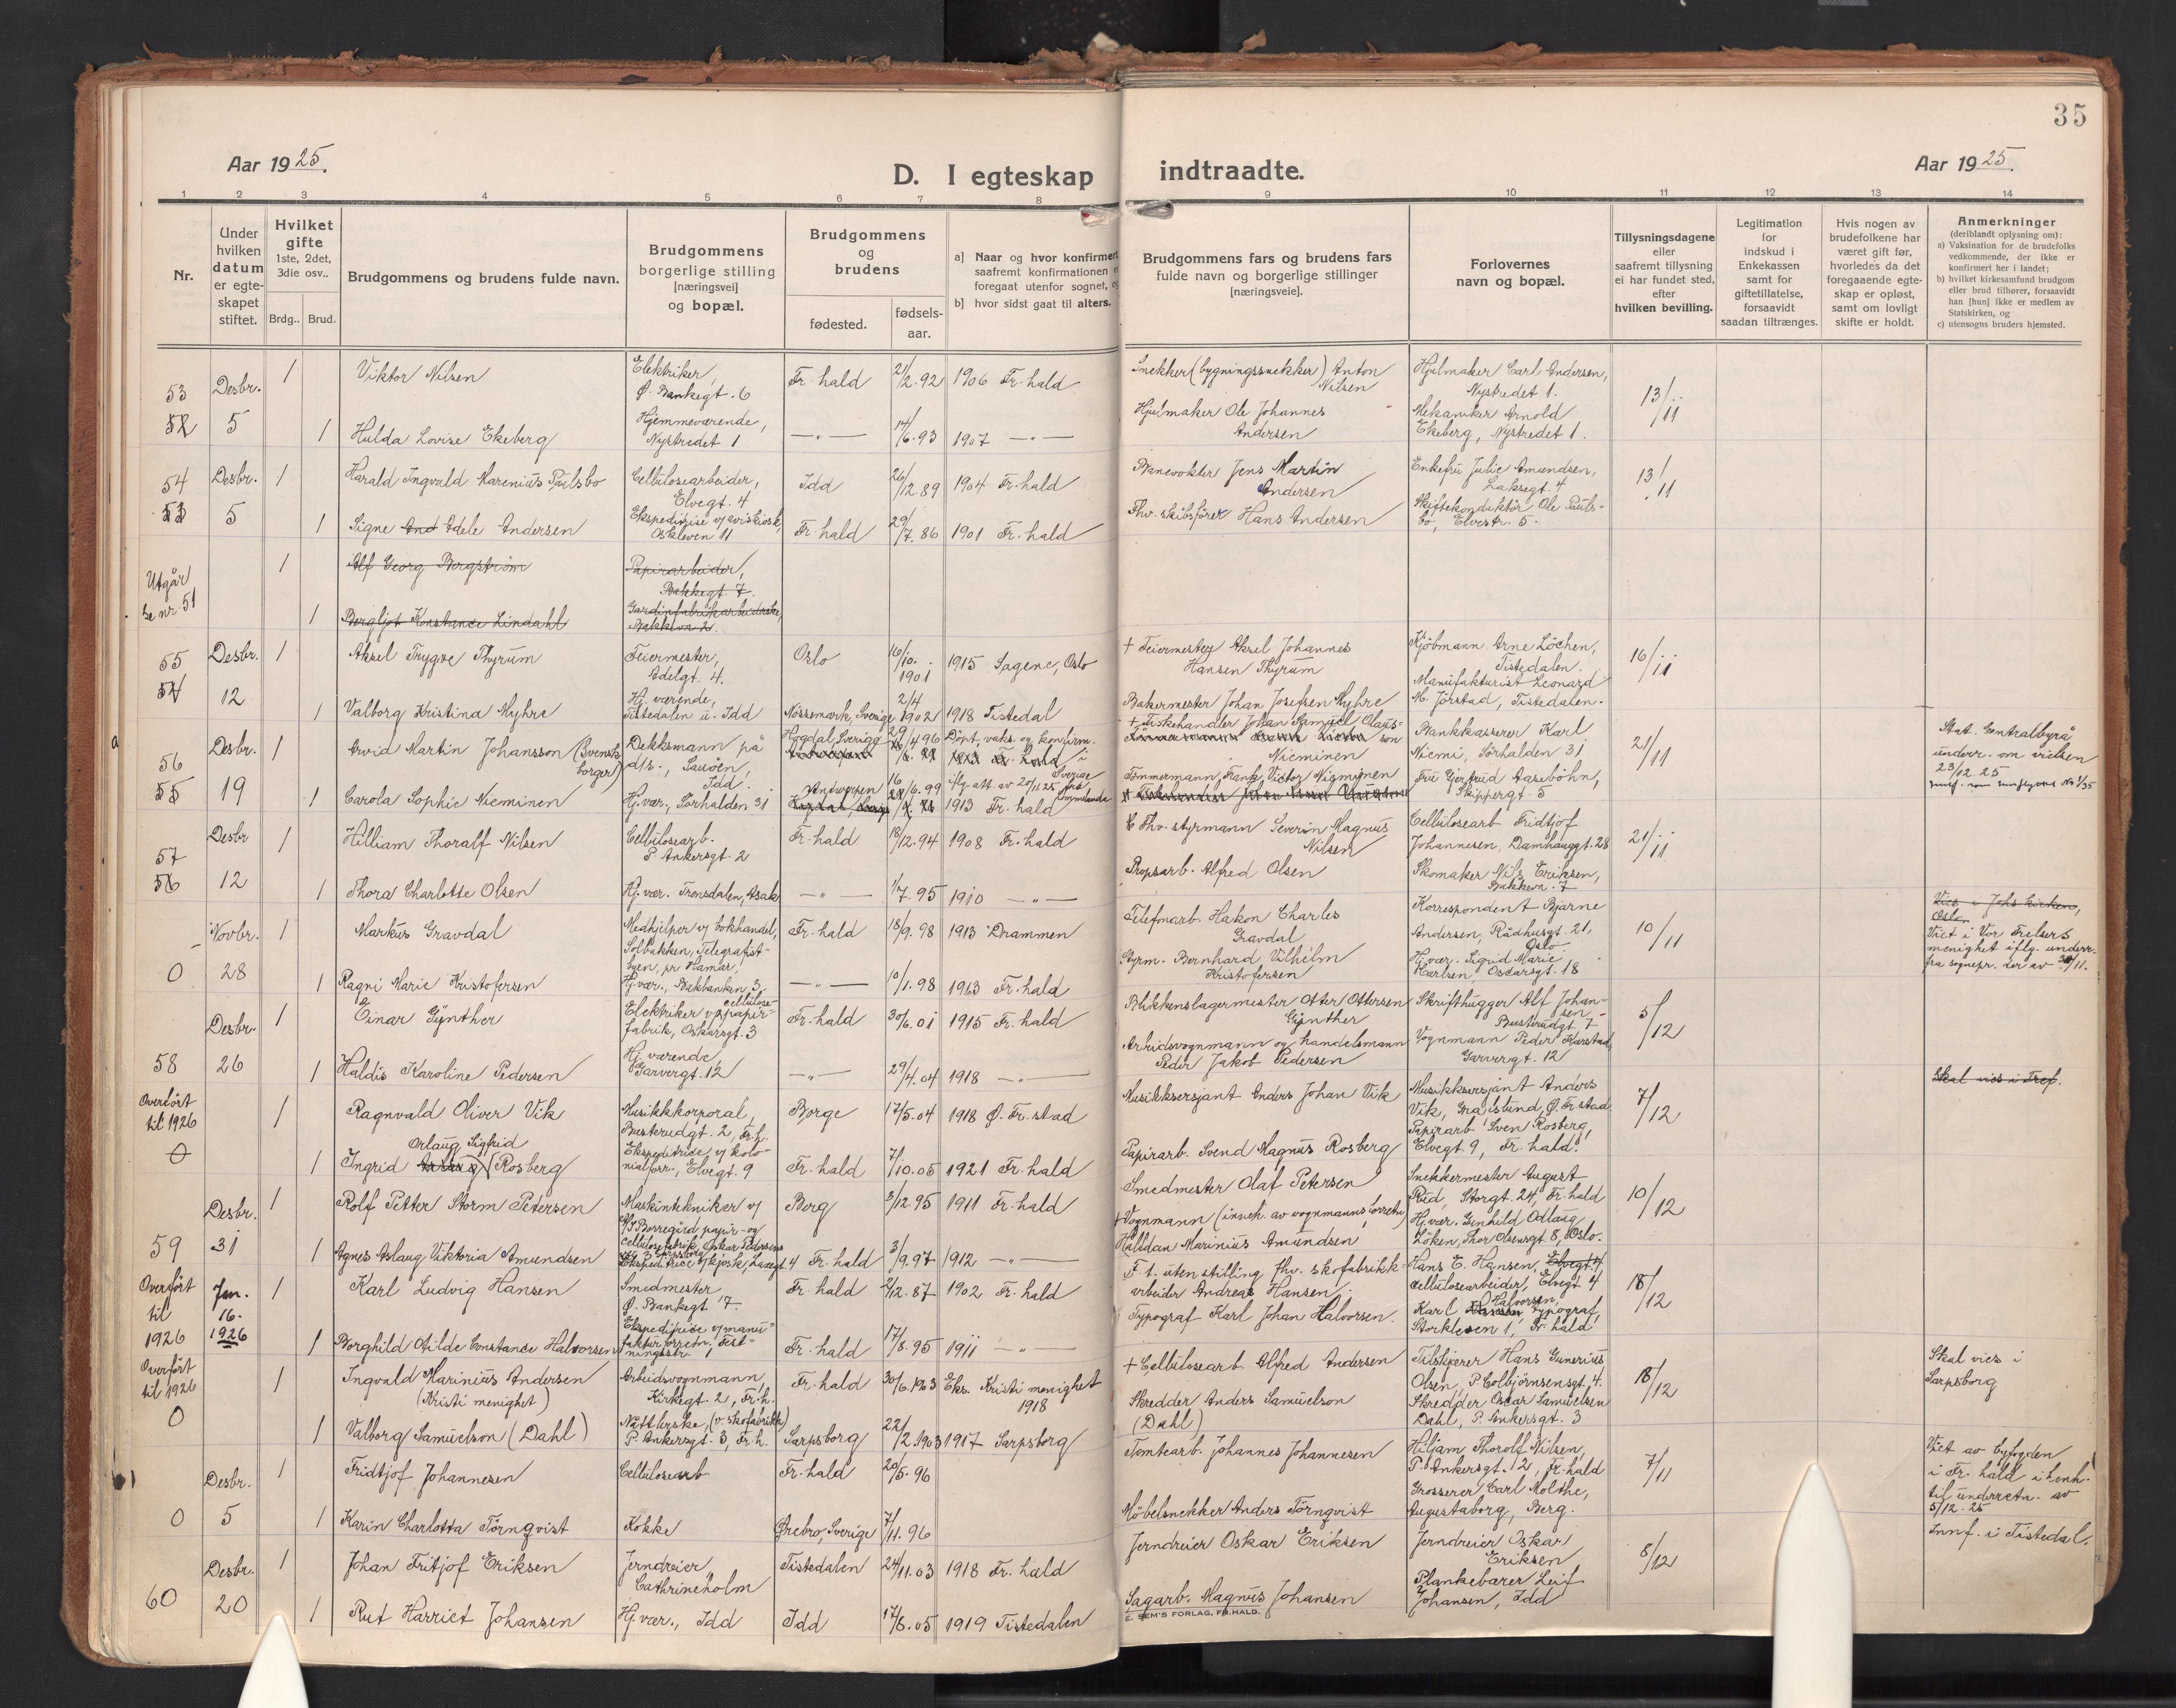 35
Aar 1925.
D. I egteskap indtraadte.
Aar 1925.
1 2 3 4 5 6 7 8 9 10 11 12 13 14
Nr.
Under hvilken datum er egteskapet stiftet.
Hvilket gifte 1ste, 2det, 3die osv..
Brdg.. Brud.
Brudgommens og brudens fulde navn.
Brudgommens borgerlige stilling [næringsvei] og bopæl.
Brudgommens og brudens
fødested.
fødsels-aar.
a] Naar og hvor konfirmert
saafremt konfirmationen
foregaat utenfor sognet,
b] hvor sidst gaat til alters.
Brudgommens fars og brudens fars
fulde navn og borgerlige stillinger
[næringsveie].
Forlovernes
navn og bopæl.
Tillysningsdagene
eller
saafremt tillysning
ei har fundet sted,
efter
hvilken bevilling.
Legitimation
for
indskud i
Enkekassen
samt for
giftetillatelse,
forsaavidt
saadan tiltrænges.
Hvis nogen av
brudefolkene har
været gift før,
hvorledes da det
foregaaende egte-
skap er opløst,
samt om lovligt
skifte er holdt.
Anmerkninger
(deriblandt oplysning om):
a) Vaksination for de brudefolks
vedkommende, der ikke er
konfirmert her i landet;
b) hvilket kirkesamfund brudgom
eller brud tilhører, forsaavidt
han [hun] ikke er medlem av
Statskirken, og
c) utensogns bruders hjemsted.
53 Desbr. 1 Viktor Nilsen Elektriker, Ø. Bankegt. 6 Fr.hald 21/2.92 1906 Fr.hald Snekker (bygningssnekker) Anton Nilsen Hjulmaker Carl Andersen, Nystredet 1. 13/11
52 5 1 Hulda Lovise Ekeberg Hjemmeværende, Nystredet 1 —"— 14/6.93 1907 —"— Hjulmaker Ole Johannes Andersen Mekaniker Arnold Ekeberg, Nystredet 1.
54 Desbr. 1 Harald Ingvald Marenius Paulsbo Cellulosearbeider, Elvegt. 4 Idd 26/12.89 1904 Fr.hald Banevokter Jens Martin Andersen Enkefru Julie Amundsen, Laksegt. 4 13/11
53 5 1 Signe And Adele Andersen Ekspeditrise v/ aviskiosk, Oskleven 11 Fr.hald 29/7.86 1901 Fr.hald Fhv. skibsfører Hans Andersen Skiftekonduktör Ole Paulsbo, Elvestr. 5
Utgår 1 Alf Georg Bergström Papirarbeider, Bakkegt. 7
Se nr. 51 1 Bergljot Konstance Lindahl Gardinfabrikarbeiderske, Bakkevn 2.
55 Desbr. 1 Aksel Trygve Thyrum Feiermester, Adelgt. 4. Oslo 10/10. 1901 1915 Sagene, Oslo + Feiermester Aksel Johannes Hansen Thyrum Kjöbmann Arne Löchen, Tistedalen. 16/11
54 12 1 Valborg Kristina Myhre Hj. værende, Tistedalen u. Idd Nössemark, Sverige 2/4 1902 1918 Tistedal Bakermester Johan Josefsen Myhre Manufakturist Leonard M. Jörstad, Tistedalen.
56 Desbr. 1 Arvid Martin Johansson (Svensk borger) Dekksmann på d/s, Sauöen, Idd. Hogdal, Sverige 29/4 96 Döpt, vaks. og konfirm. i Sverige iflg. att. av 20/11 25 + Fiskehandler Johan Samuel Olausson Bankkasserer Karl Niemi, Sörhalden 31 21/11 Stat. Sentralbyrå underr. om vielsen 23/12 25
55 19 1 Carola Sophie Nieminen Hj. vær., Sörhalden 31 Antwerpen 16/6.99 1913 Fr.hald Tömmermann, Frank Victor Nieminen Fru Gjertrud Aaseböhn, Skippergt. 5
57 Desbr 1 Hilliam Thoralf Nilsen Cellulosearb. P. Ankersgt. 2 Fr.hald 18/12.94 1908 Fr.hald Fhv. styrmann Severin Magnus Nilsen Cellulosearb Fridtjof Johannesen, Damhauggt. 28 21/11
56 12 1 Thora Charlotte Olsen Hj. vær. Tronsdalen, Asak —"— 1/7.95 1910 —"— Propsarb. Alfred Olsen Skomaker Nils Eriksen, Bakkevn. 7
Novbr. 1 Markus Gravdal Medhjelper v/ bokhandel, Solbakken, Telegrafistbyen, pr Hamar, Fr.hald 18/9.98 1913 Drammen Telefonarb. Hakon Charles Gravdal Korrespondent Bjarne Andersen, Rådhusgt. 21, Oslo 10/11 Vies i Johs kirken, Oslo. Viet i Vor Frelsers menighet iflg. underr. fra sognepr. der av 30/11.
0 28 1 Ragni Marie Kristofersen Hj. vær., Bakbanken 3. —"— 10/1.98 1913 Fr.hald Styrm. Bernhard Vilhelm Kristofersen Hj. vær. Sigrid Marie Karlsen, Oscarsgt. 18
Desbr. 1 Einar Gÿnther Elektriker v/ cellulose- papirfabrik, Oskarsgt. 3 Fr.hald 30/6.01 1915 Fr.hald Blikkenslagermester Otter Ottersen Gÿnther Skrifthugger Alf Johansen Busterudgt. 7 5/12
58 26 1 Haldis Karoline Pedersen Hj. værende Garvergt. 12 —"— 29/4.04 1918 —"— Arbeidsvognmann og handelsmann Peder Jakob Pedersen Vognmann Peder Karstad, Garvergt. 12
Overfört til 1926 1 Ragnvald Oliver Vik Musikkkorporal, Busterudgt. 2, Fr.h. Borge 17/5.04 1918 Ø. Fr.stad Musikksersjant Anders Johan Vik Musikksersjant Anders Vik, Gralstund, Ø. Fr.stad 7/12 Skal vies i Tref.
0 1 Ingrid Orlaug Sigfrid Rosberg Ekspeditrice v/ kolonialforr., Elvegt. 9 Fr.hald 7/10.05 1921 Fr.hald Papirarb. Svend Magnus Rosberg Papirarb Sven Rosberg, Elvegt. 9, Fr.hald.
Desbr. 1 Rolf Petter Storm Petersen Maskintekniker v/ A/S Borregård papir- og cellulosefabrik, Oskar Pedersens gt. 3 Sarpsborg Berg 3/12.95 1911 Fr.hald Smedmester Olaf Petersen Snekkermester August Rud, Storgt. 24, Fr.hald 10/12
59 31 1 Agnes Aslaug Viktoria Amundsen Ekspeditrice v/ kjosk, Laksegt. 4 Fr.hald 3/9.97 1912 —"— + Vognmann (inneh. av vognmannsforretn) Halldan Marinius Amundsen Hj. vær. Gunhild Odlaug Löken, Thor Olsensgt. 8, Oslo.
Overfört Jan. 1 Karl Ludvig Hansen Smedmester Ø. Bankegt 7. Fr.hald 2/12.87 1902 Fr.hald F. t. uten stilling, fhv. skofabrikkarbeider Andreas Hansen Hans E. Hansen, Elvegt. 4, cellulosearbeider, Elvegt 4 18/12
til 1926 16. 1926 1 Borghild Otilde Constance Halvorsen Ekspeditrice v/ manufakturforretn. Festningsstr. 1 Fr.hald 17/8.95 1911 —"— Typograf Karl Johan Halvorsen. Karl Hansen Halvorsen, typograf, Storkleven 1, Fr.hald
Overfört til 1926 1 Ingvald Marinius Andersen (Kristi menighet) Arbeidsvognmann, Kirkegt. 2, Fr.h. Fr.hald 30/6.1903 Eks. Kristi menighet 1918 + Cellulosearb. Alfred Andersen Tilskjærer Hans Gunerius Olsen, P. Colbjörnsensgt. 4. 18/12 Skal vies i Sarpsborg
0 1 Valborg Samuelson (Dahl) Nåtlerske, (v. skofabrikk) P. Ankersgt. 3, Fr.h. Sarpsborg 22/2.1903 1917 Sarpsborg Skredder Anders Samuelson (Dahl) Skredder Oscar Samuelsen Dahl, P. Ankersgt. 3
Desbr. 1 Fridtjof Johannesen Cellulosearb Fr.hald 20/5.96 Tomtearb. Johannes Johannesen Hiljam Thorolf Nilsen, P. Ankersgt. 2, Fr.hald 7/11 Viet av byfogden i Fr.hald i henh. til underretn. av 5/12.25
0 5 1 Karin Charlotta Törnqvist Kokke Ørebro, Sverige 7/11.96 Möbelsnekker Anders Törnqvist Grosserer Carl Molthe, Augustaborg, Berg.
Desbr. 1 Johan Fritjof Eriksen Jerndreier, Cathrineholm Tistedalen 24/11.03 1918 Fr.hald Jerndreier Oskar Eriksen Jerndreier Oskar Eriksen 8/12 Innf. i Tistedal.
60 20 1 Rut Harriet Johansen Hj. vær., Idd Idd 17/8.05 1919 Tistedalen Sagarb. Magnus Johansen Plankebærer Leif Johansen, Idd
E. SEM'S FORLAG, FR.HALD.